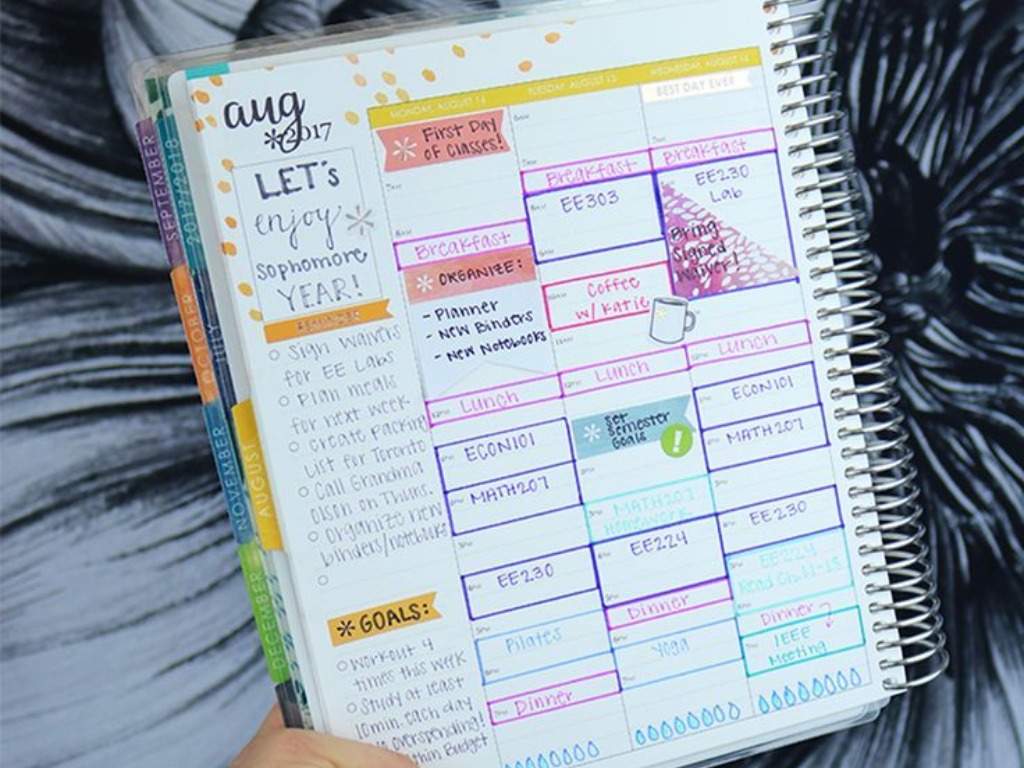 aug
*2017
LET'S
enjoy
sophomore
YEAR!
Sign Waivers
for EE Labs
Plan meals
for next week
Create Packing
List for Toronto
Call Grandma
Olson on Thurs.
Organize new
binders/notebooks
* GOALS:
Workout 4
times this week
Study at least
10min. each day
overspending!
Budget
MONDAY, AUGUST 14
First Day
of Classes!
Breakfast
* ORGANIZE:
- Planner
- New Binders
- New Notebooks
Lunch
ECON101
MATH207
EE230
Pilates
Dinner
TUESDAY, AUGUST 15
Breakfast
EE303
Coffee
w/ Katie
Lunch
Set
Semester
Goals
!
MATH207
Homework
EE224
Dinner
Yoga
WEDNESDAY, AUGUST 16
BEST DAY EVER
Breakfast
EE230
Lab
Bring
Signed
Waiver!
Lunch
ECON101
MATH207
EE230
EE224
Read Ch. 11-13
Dinner
IEEE
Meeting
SEPTEMBER
2017/2018
OCTOBER
JULY
NOVEMBER
AUGUST
DECEMBER